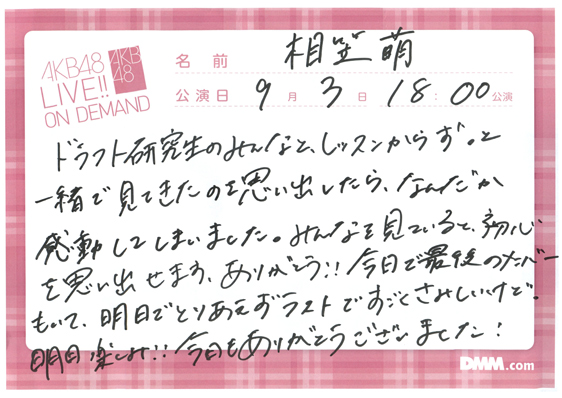 AKB48
LIVE!!
ON DEMAND
AKB
48
名前 相笠萌
公演日 9月3日 18:00公演
ドラフト研究生のみんなと、レッスンからずっと
一緒で見てきたのを思い出したら、なんだか
感動してしまいました。みんなを見ていると、初心
を思い出せます、ありがとう!!今日で最後のナンバー
もいて、明日でとりあえずラストですごくさみしいけど。
明日楽しみ!!今日もありがとうございました!
DMM.com